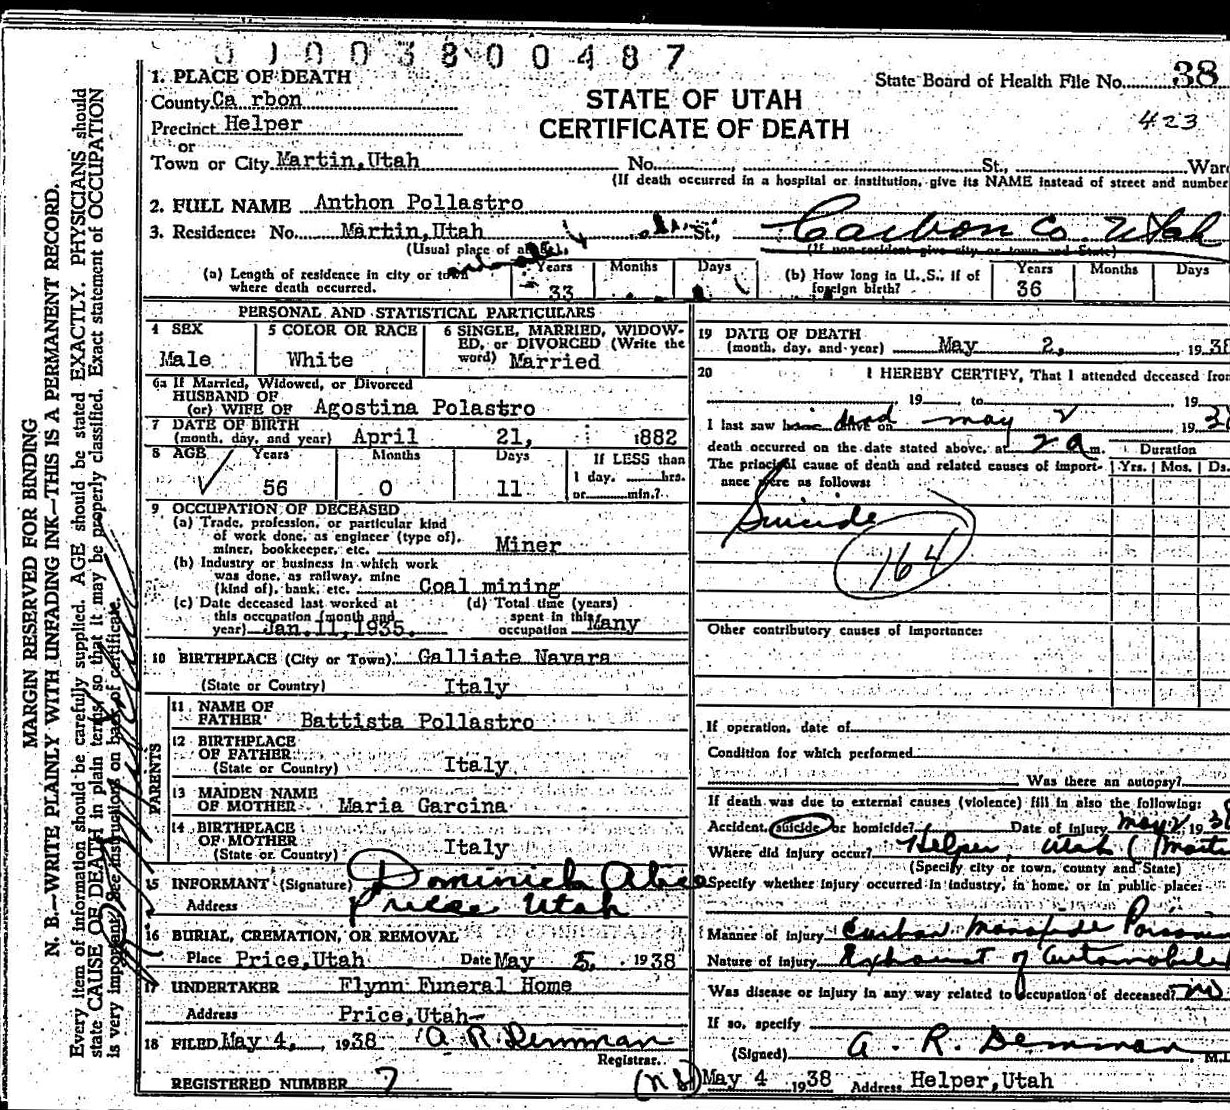 0 1 0 0 3 8 0 0 4 8 7
1. PLACE OF DEATH
State Board of Health File No. 38
County Ca rbon
STATE OF UTAH
Precinct Helper
CERTIFICATE OF DEATH
423
or
Town or City Martin, Utah No. St., Ward
(If death occurred in a hospital or institution, give its NAME instead of street and number
2. FULL NAME Anthon Pollastro
3. Residence: No. Martin, Utah St., Carbon Co. Utah
(Usual place of abode) (If non-resident give city or town and State)
(a) Length of residence in city or town where death occurred. Years 33 Months Days
(b) How long in U. S., if of foreign birth? Years 36 Months Days
PERSONAL AND STATISTICAL PARTICULARS
4 SEX Male
5 COLOR OR RACE White
6 SINGLE, MARRIED, WIDOW-
ED, or DIVORCED (Write the
word) Married
6a If Married, Widowed, or Divorced
HUSBAND OF
(or) WIFE OF Agostina Polastro
7 DATE OF BIRTH
(month, day, and year) April 21, 1882
8 AGE Years 56 Months 0 Days 11
If LESS than
1 day, hrs.
or min.?
9 OCCUPATION OF DECEASED
(a) Trade, profession, or particular kind
of work done, as engineer (type of),
miner, bookkeeper, etc. Miner
(b) Industry or business in which work
was done, as railway, mine
(kind of), bank, etc. Coal mining
(c) Date deceased last worked at
this occupation (month and
year) Jan. 11, 1935.
(d) Total time (years)
spent in this
occupation Many
10 BIRTHPLACE (City or Town) Galliate Navara
(State or Country) Italy
PARENTS
11 NAME OF
FATHER Battista Pollastro
12 BIRTHPLACE
OF FATHER
(State or Country) Italy
13 MAIDEN NAME
OF MOTHER Maria Garcina
14 BIRTHPLACE
OF MOTHER
(State or Country) Italy
15 INFORMANT (Signature) Dominick
Address Price Utah
16 BURIAL, CREMATION, OR REMOVAL
Place Price, Utah Date May 5, 1938
17 UNDERTAKER Flynn Funeral Home
Address Price, Utah
18 FILED May 4, 1938 A. R. Demman
Registrar.
REGISTERED NUMBER 7
19 DATE OF DEATH
(month, day, and year) May 2, 1938
20 I HEREBY CERTIFY, That I attended deceased from
19 to 19
I last saw dead on May 2 19 38
death occurred on the date stated above, at 2 a m.
Duration
The principal cause of death and related causes of import-
ance were as follows:
Yrs. Mos. Ds.
Suicide
164
Other contributory causes of importance:
If operation, date of
Condition for which performed
Was there an autopsy?
If death was due to external causes (violence) fill in also the following:
Accident, suicide, or homicide? Date of injury May 2, 19 38
Where did injury occur? Helper, Utah (Martin
(Specify city or town, county and State)
Specify whether injury occurred in industry, in home, or in public place:
Manner of injury Carbon Monoxide Poisoning
Nature of injury Exhaust of Automobile
Was disease or injury in any way related to occupation of deceased? no
If so, specify
(Signed) A. R. Demman, M.D
(NS) May 4 1938 Address Helper, Utah
MARGIN RESERVED FOR BINDING
N. B.—WRITE PLAINLY WITH UNFADING INK—THIS IS A PERMANENT RECORD.
Every item of information should be carefully supplied. AGE should be stated EXACTLY. PHYSICIANS should
state CAUSE OF DEATH in plain terms, so that it may be properly classified. Exact statement of OCCUPATION
is very important. See instructions on back of certificate.